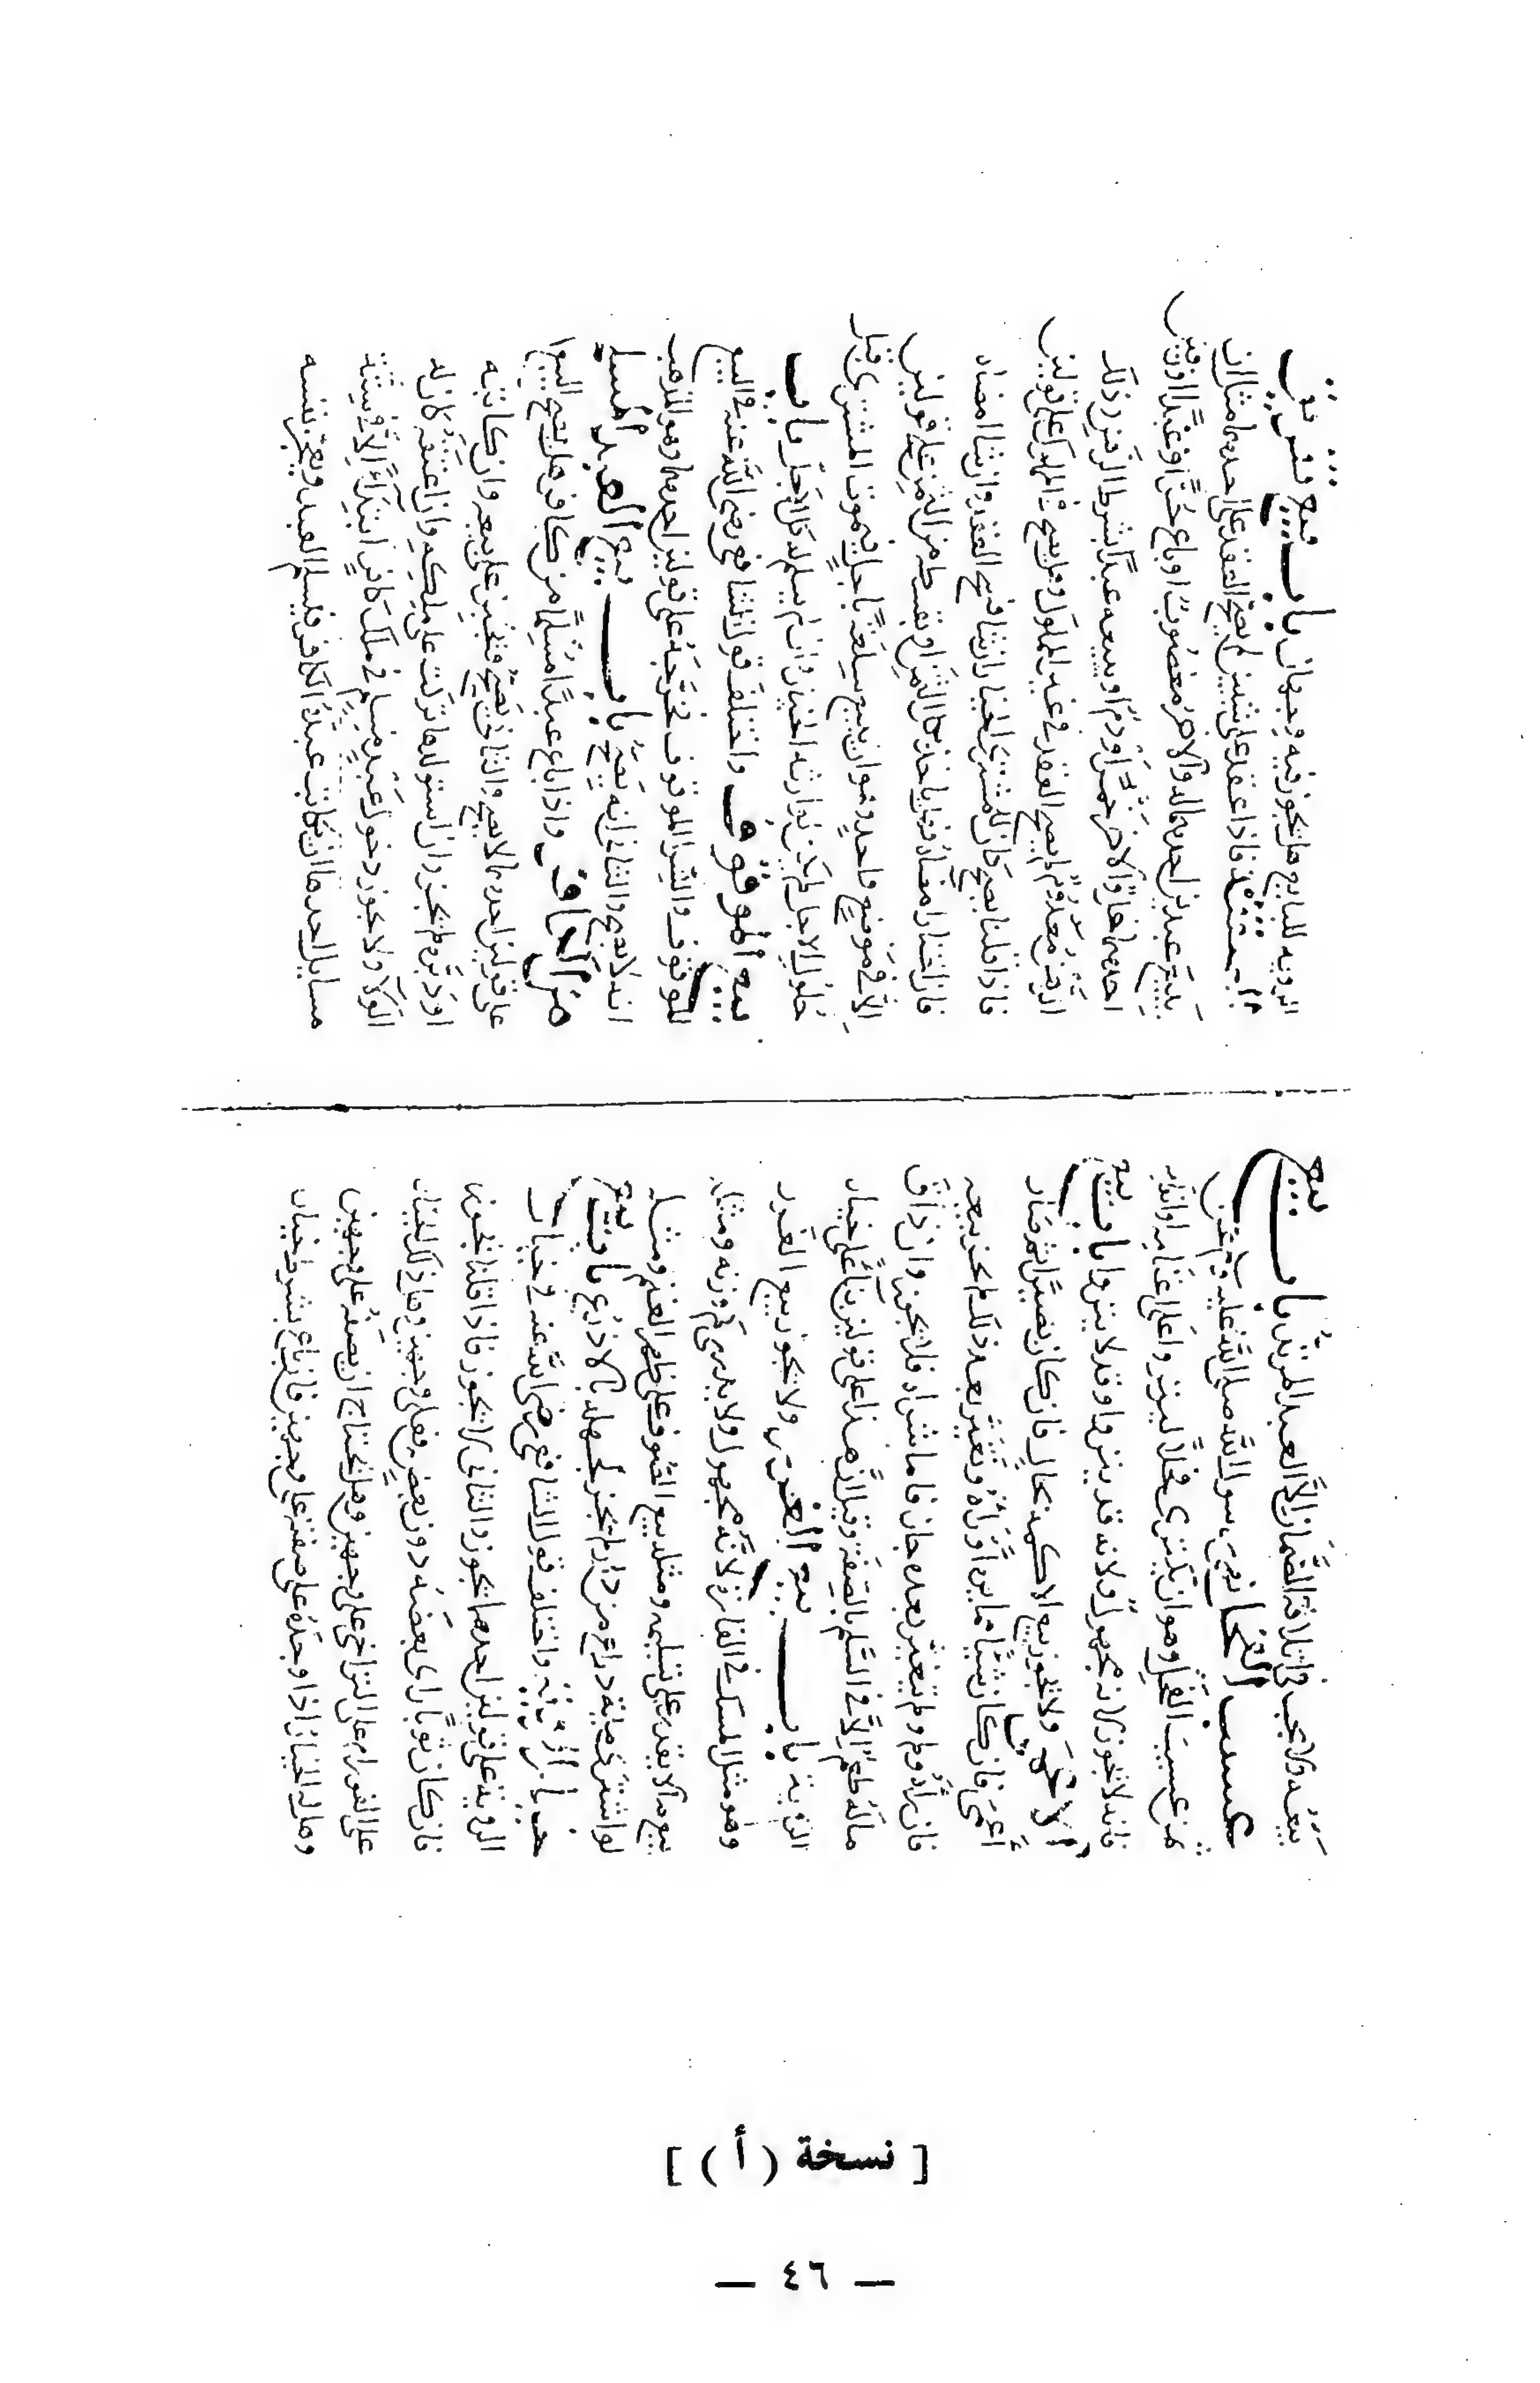 بيعه ولا يجب في اتلافه الضمان الا العبد المرتد باب بيع
عسب الفحل نهى رسول الله صلى الله عليه وسلم عن
ثمن عسيب الفحل وهو ان يكترى فحلا لينزو على غنمه او ابله
فانه لا يجوز لانه مجهول ولانه قد ينزو او قد لا ينزو باب بيع
الاعمى ولا يجوز بيع الاكمه بحال فان كان بصيرا ثم صار
اعمى فان كان شيا مما يرى اوراه وتغير بعد ذلك لم يجز بيعه
فان راه ولم يتغير بعده جاز فاما شراوه فلا يجوز وان ذاق
ماله طعم الا في السلم بالصفة وقيل ان هذا على قولين بناء على خيار
الروية باب بيع الغرر ولا يجوز بيع الغرر
وهو مثل المسك في الفارة لانه مجهول ولا يدرى كم وزنه ومثل
بيع ما لا يقدر على تسليمه ومثله بيع الصوف على ظهر الغنم ومثله
لو اشترى مائة ذراع من دار لم يجز لجهله بالاذرع باب بيع
خيار الروية واختلف قول الشافعي رضي الله عنه في خيار
الروية على قولين احدهما يجوز والثاني لا يجوز فاذا قلنا يجوز
فان كان ثوبا راى بعضه دون بعض فعلى وجهين وهل ذلك الخيار
على الفور ام على التراخي على وجهين وهل يحتاج ان يصفه على وجهين
وهل له الخيار اذا وجده على صفته على وجهين فان باع بشرط خيار
الروية للبايع هل يجوز فيه وجهان باب بيع تفريق
الصفقة فاذا عقد على شيين لم يصح العقد على احدهما مثل ان
يبيع عبدين احدهما له والاخر مغصوب او باع حرا وعبدا او زقين
احدهما خل والاخر خمر او دم او يبيعه عبدا بشرط الرهن ذلك
الرهن معدوم لم يصح العقد في غير المملوك وهل يصح في المملوك على قولين
فاذا قلنا يصح كان للمشتري الخيار ان شا فسخ العقد وان شا امضاه
فان اختار امضاه فهل ياخذ بكل الثمن او بقسطه من الثمن على قولين
الا في موضع واحد وهو ان يبيع سلعة باجل فيموت المشتري قبل
حلول الاجل لم يكن لوارثه الخيار وان لم يسلم له كل الاجل باب
بيع الموقوف واختلف قول الشافعي رضي الله عنه في البيع
الموقوف والشرا الموقوف فخرجه على قولين احدهما وهو المذهب
انه لا يصح والثاني انه يصح باب بيع العبد المسلم
من الكافر واذا باع عبدا مسلما من كافر هل يصح البيع ام لا
على قولين احدهما لا يصح والثاني يصح ويجبر على بيعه وان كاتبه
او دبره لم يجز وان استولدها تركت على ملكه وان اعتقه كان له
الولا ولا يجوز دخول عبد مسلم في ملك كافر ابتداء الا في ستة
مسايل احدها ان يكاتب عبده الكافر فيسلم العبد ويعجز نفسه
[ نسخة ( أ ) ]
— ٤٦ —